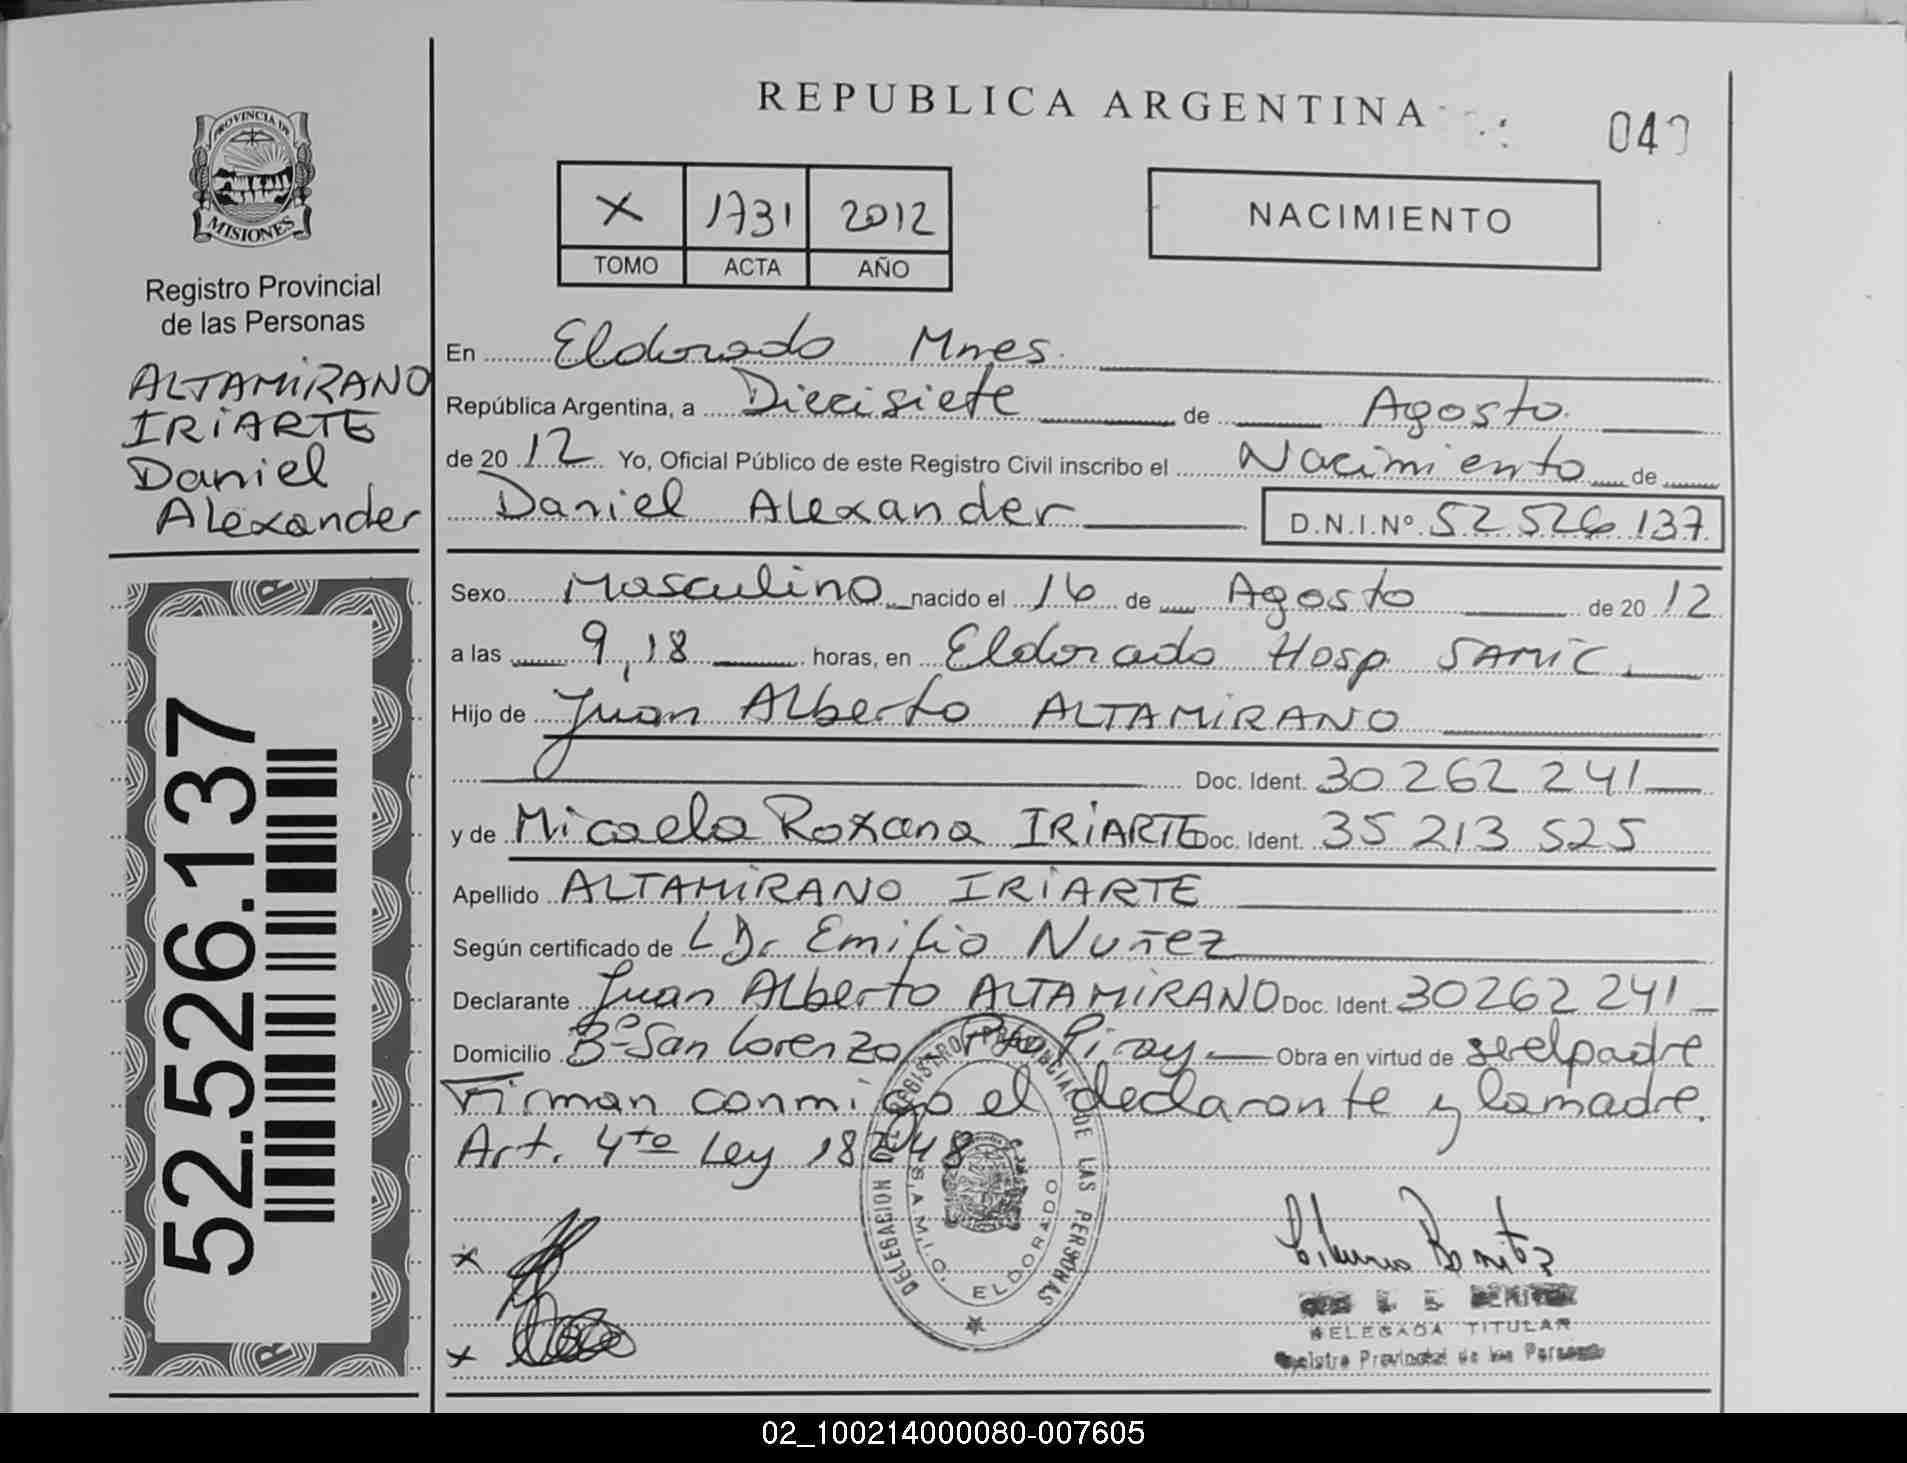 REPUBLICA ARGENTINA
04
PROVINCIA DE
MISIONES
Registro Provincial
de las Personas
ALTAMIRANO
IRIARTE
Daniel
Alexander
52.526.137
X 1731 2012
TOMO ACTA AÑO
NACIMIENTO
En Eldorado Mnes.
República Argentina, a Diecisiete de Agosto.
de 2012 Yo, Oficial Público de este Registro Civil inscribo el Nacimiento de
Daniel Alexander D.N.I.Nº 52 526 137
Sexo Masculino nacido el 16 de Agosto de 2012
a las 9,18 horas, en Eldorado Hosp. SAMIC.
Hijo de Juan Alberto ALTAMIRANO
Doc. Ident. 30 262 241
y de Micaela Roxana IRIARTE Doc. Ident. 35 213 525
Apellido ALTAMIRANO IRIARTE
Según certificado de Dr Emilio Nuñez
Declarante Juan Alberto ALTAMIRANO Doc. Ident. 30262 241
Domicilio Bº San Lorenzo Pto Piray Obra en virtud de ser el padre
Firman conmigo el declarante y la madre.
Art. 4to Ley 18248
DELEGACION DEL REGISTRO PROVINCIAL DE LAS PERSONAS
S.A.M.I.C. ELDORADO
x
x
Benitez
BENITEZ
DELEGADA TITULAR
Registro Provincial de las Personas
02_100214000080-007605